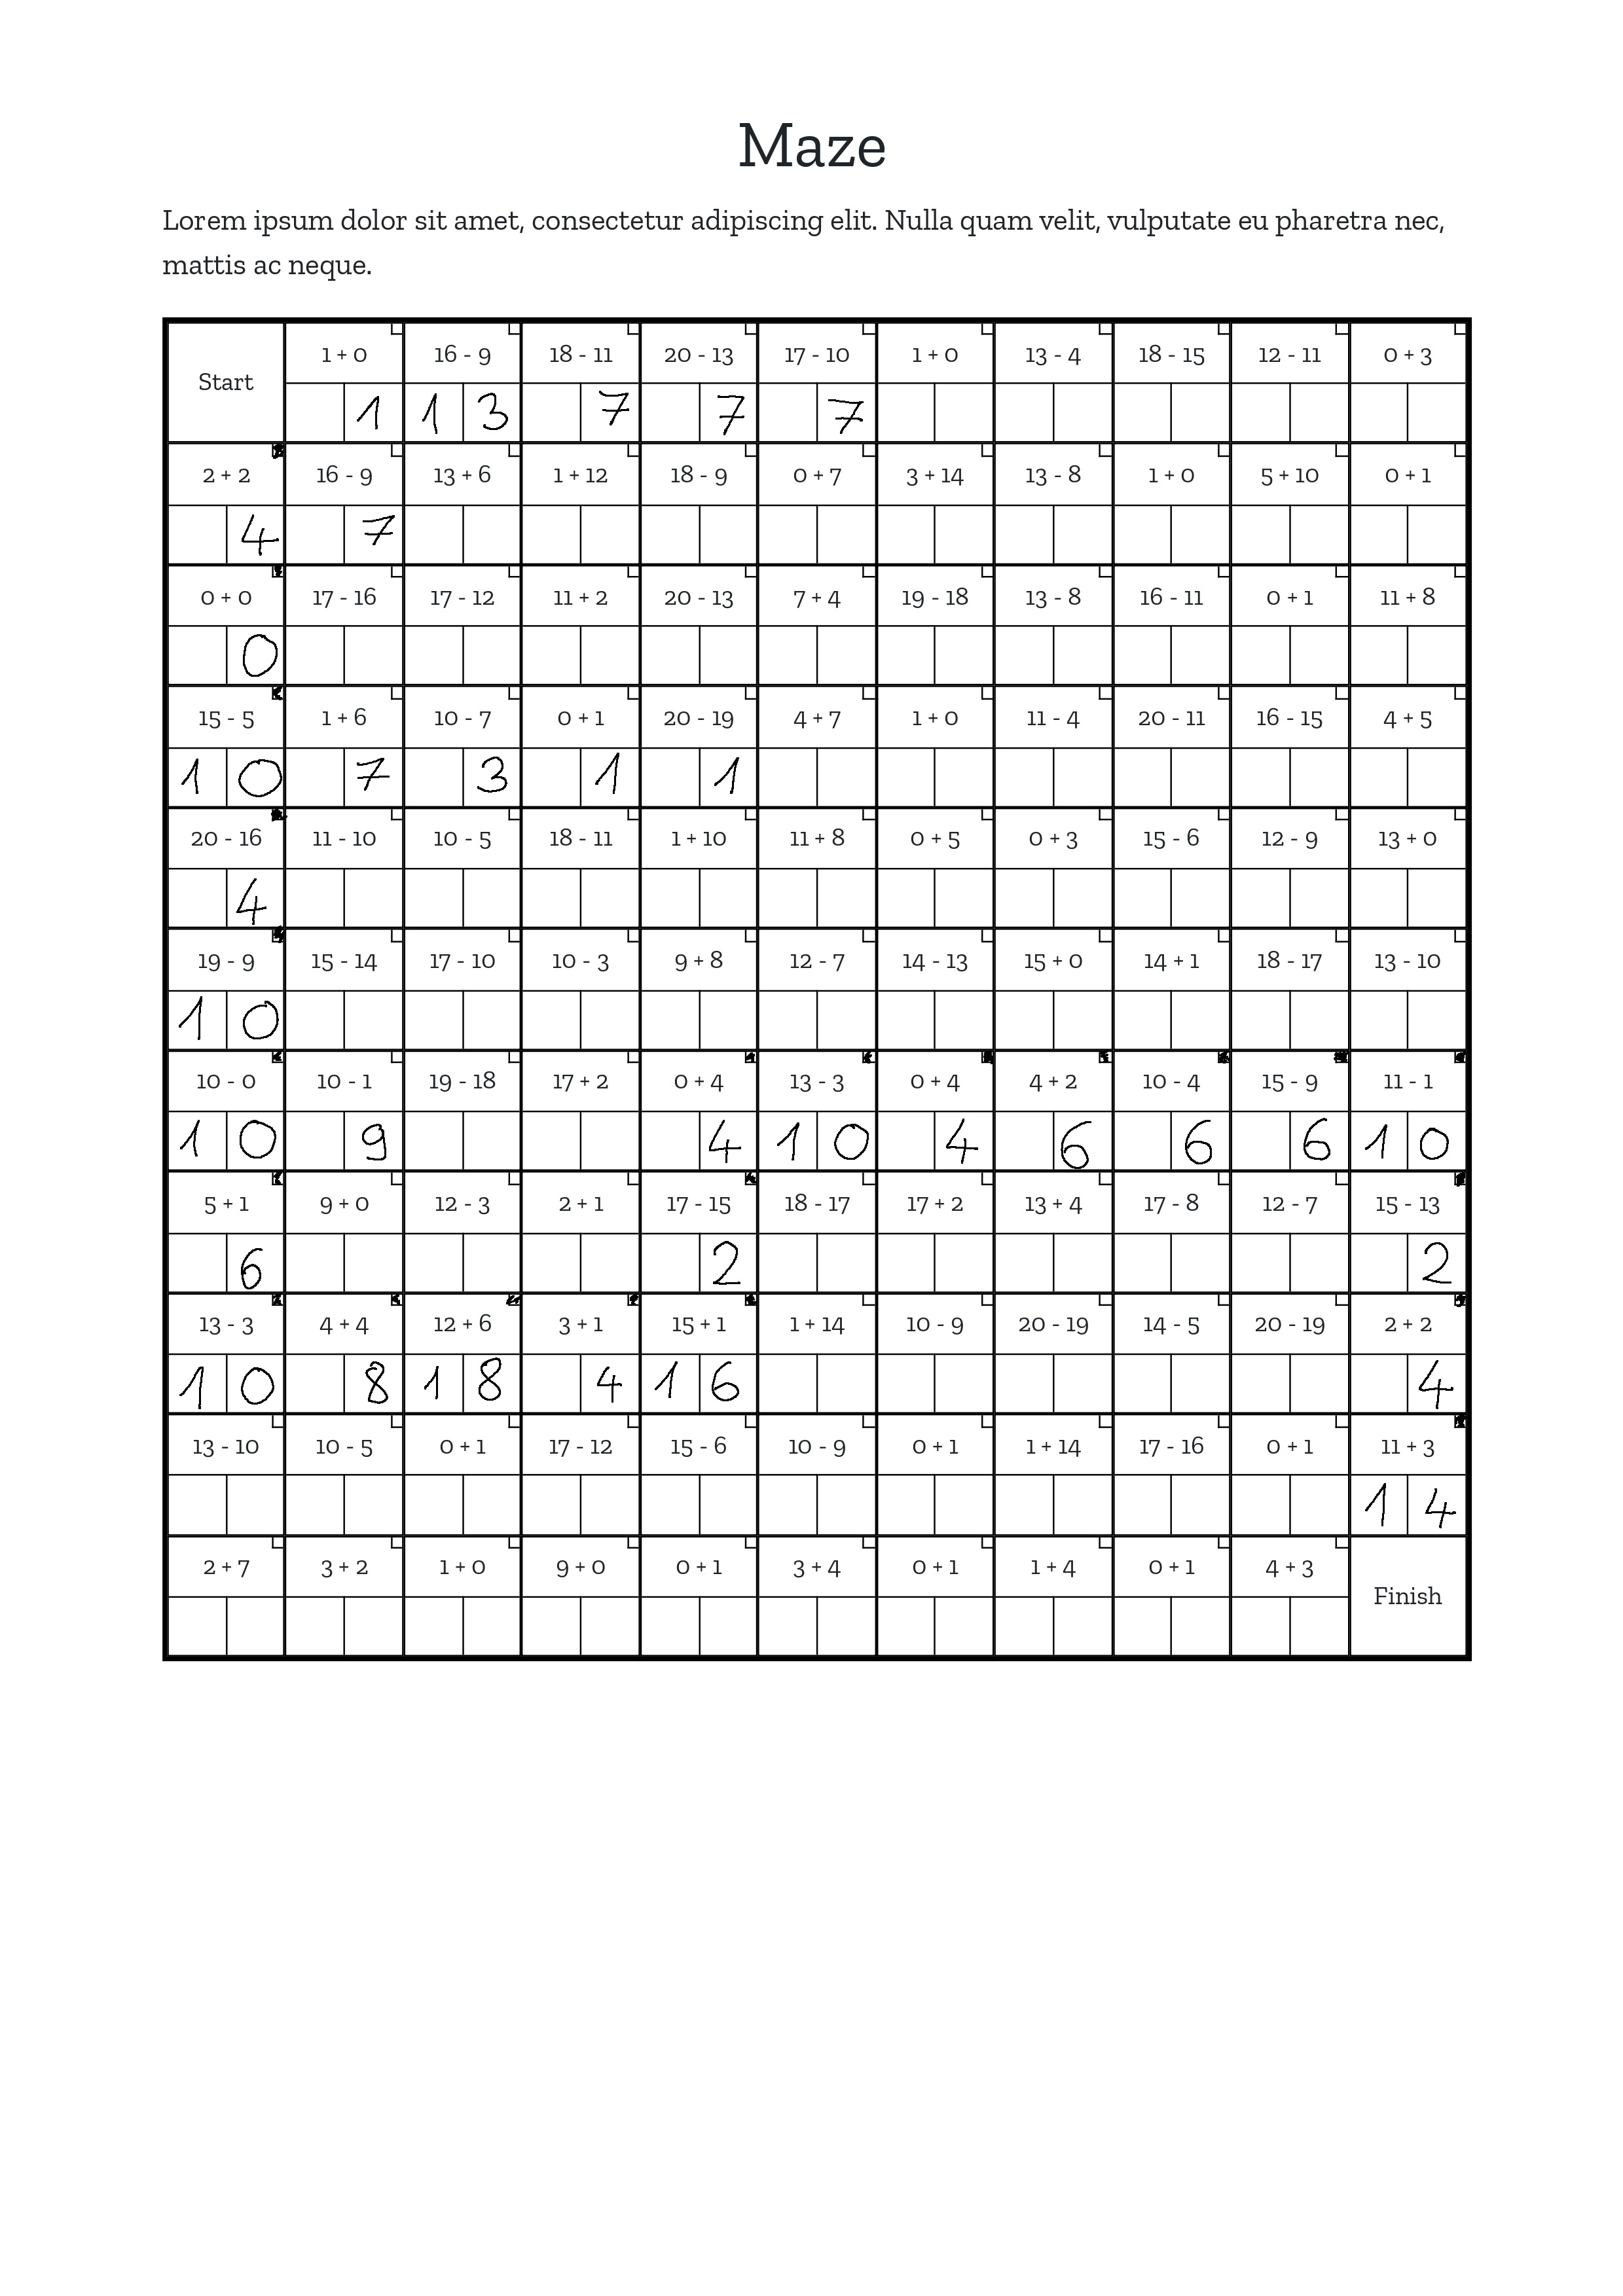 Maze
Lorem ipsum dolor sit amet, consectetur adipiscing elit. Nulla quam velit, vulputate eu pharetra nec,
mattis ac neque.
Start 1 + 0 16 - 9 18 - 11 20 - 13 17 - 10 1 + 0 13 - 4 18 - 15 12 - 11 0 + 3
1 1 3 7 7 7
2 + 2 16 - 9 13 + 6 1 + 12 18 - 9 0 + 7 3 + 14 13 - 8 1 + 0 5 + 10 0 + 1
4 7
0 + 0 17 - 16 17 - 12 11 + 2 20 - 13 7 + 4 19 - 18 13 - 8 16 - 11 0 + 1 11 + 8
0
15 - 5 1 + 6 10 - 7 0 + 1 20 - 19 4 + 7 1 + 0 11 - 4 20 - 11 16 - 15 4 + 5
1 0 7 3 1 1
20 - 16 11 - 10 10 - 5 18 - 11 1 + 10 11 + 8 0 + 5 0 + 3 15 - 6 12 - 9 13 + 0
4
19 - 9 15 - 14 17 - 10 10 - 3 9 + 8 12 - 7 14 - 13 15 + 0 14 + 1 18 - 17 13 - 10
1 0
10 - 0 10 - 1 19 - 18 17 + 2 0 + 4 13 - 3 0 + 4 4 + 2 10 - 4 15 - 9 11 - 1
1 0 9 4 1 0 4 6 6 6 1 0
5 + 1 9 + 0 12 - 3 2 + 1 17 - 15 18 - 17 17 + 2 13 + 4 17 - 8 12 - 7 15 - 13
6 2 2
13 - 3 4 + 4 12 + 6 3 + 1 15 + 1 1 + 14 10 - 9 20 - 19 14 - 5 20 - 19 2 + 2
1 0 8 1 8 4 1 6 4
13 - 10 10 - 5 0 + 1 17 - 12 15 - 6 10 - 9 0 + 1 1 + 14 17 - 16 0 + 1 11 + 3
1 4
2 + 7 3 + 2 1 + 0 9 + 0 0 + 1 3 + 4 0 + 1 1 + 4 0 + 1 4 + 3 Finish